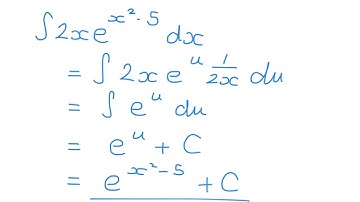 ∫ 2x e^{x²-5} dx
= ∫ 2x e^u 1/2x du
= ∫ e^u du
= e^u + C
= e^{x²-5} + C